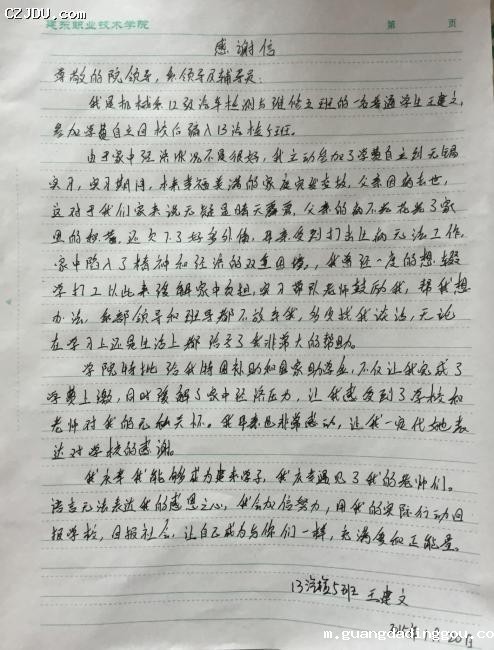 CZJDU.COM
建东职业技术学院 第 页
感谢信
尊敬的院领导，系领导及辅导员：
我是机械系12级汽车检测与维修五班的一名普通学生王建文，
参加学费自立回校后编入13汽检5班。
由于家中经济状况不是很好，我主动参加了学费自立到无锡
实习，实习期间，本来幸福美满的家庭突发变故，父亲因病去世，
这对于我们家来说无疑是晴天霹雳，父亲的病不光花光了家
里的积蓄，还欠下了好多外债，母亲受到打击让病无法工作，
家中陷入了精神和经济的双重困境，我曾经一度的想辍
学打工以此来缓解家中负担，实习带队老师鼓励我，帮我想
办法，系部领导和班导都不放弃我，多次找我谈话，无论
在学习上还是生活上都给予了我非常大的帮助。
学院特批给我特困补助和国家助学金，不仅让我完成了
学费上缴，同时缓解了家中经济压力，让我感受到了学校和
老师对我的无私关怀。我母亲也非常感动，让我一定代她表
达对学校的感谢。
我庆幸我能够成为建东学子，我庆幸遇见了我的老师们。
语言无法表达我的感恩之心，我会加倍努力，用我的实际行动回
报学校，回报社会，让自己成为与你们一样，充满爱和正能量。
13汽检5班 王建文
m.guangdadinggou.com